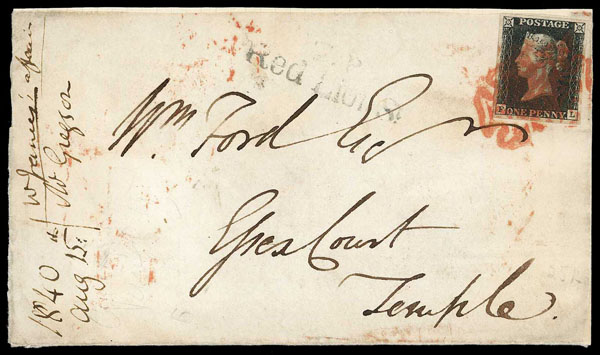 POSTAGE
ONE PENNY
L
Red Lion St.
Wm Ford Esq
Essex Court
Temple.
1840
Aug 15.
W James' affairs
Mr Gregson